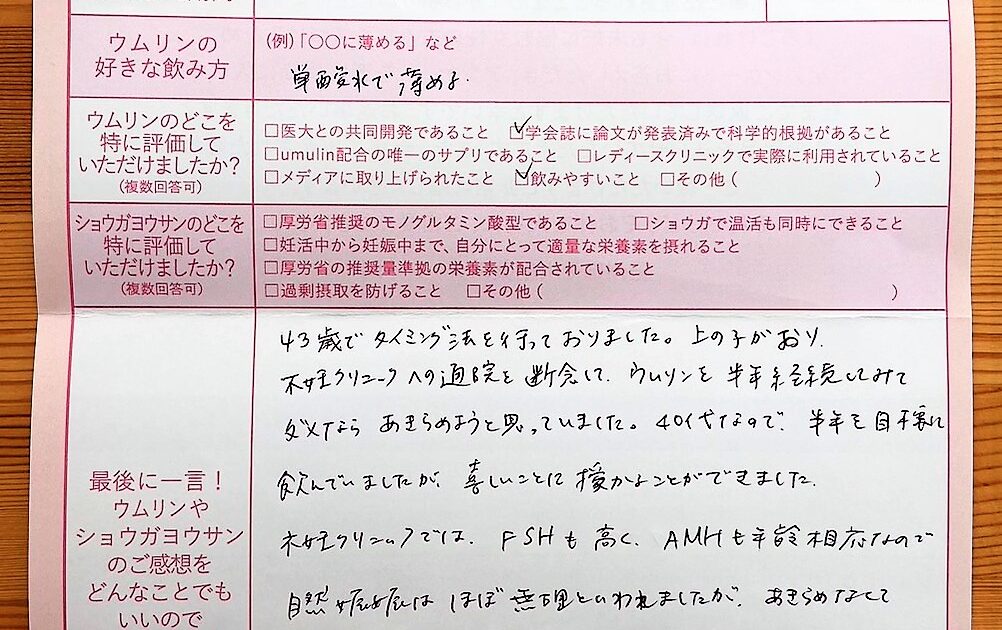 ウムリンの
好きな飲み方
(例)「〇〇に薄める」など
単酸水で薄める.
ウムリンのどこを
特に評価して
いただけましたか?
(複数回答可)
□医大との共同開発であること ☑学会誌に論文が発表済みで科学的根拠があること
□umulin配合の唯一のサプリであること □レディースクリニックで実際に利用されていること
□メディアに取り上げられたこと ☑飲みやすいこと □その他( )
ショウガヨウサンのどこを
特に評価して
いただけましたか?
(複数回答可)
□厚労省推奨のモノグルタミン酸型であること □ショウガで温活も同時にできること
□妊活中から妊娠中まで、自分にとって適量な栄養素を摂れること
□厚労省の推奨量準拠の栄養素が配合されていること
□過剰摂取を防げること □その他( )
最後に一言!
ウムリンや
ショウガヨウサン
のご感想を
どんなことでも
いいので
43歳でタイミング法を行っておりました。上の子がおり、
不妊クリニックへの通院を断念して、ウムリンを半年継続してみて
ダメなら あきらめようと思っていました。40代なので、半年を目安に
飲んでいましたが、喜しいことに授かることができました.
不妊クリニックでは、FSHも高く、AMHも年齢相応なので
自然妊娠はほぼ無理といわれましたが、あきらめなくて